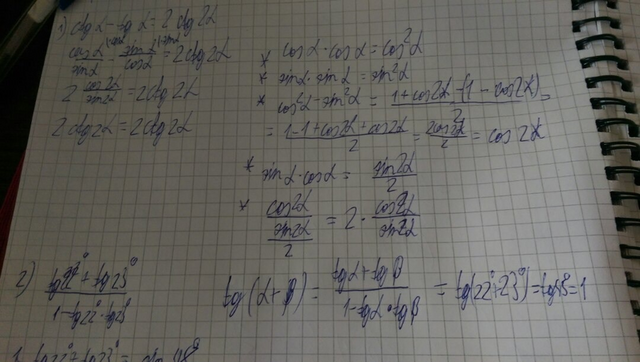 1) ctgα - tgα = 2ctg2α
cosα/sinα - sinα/cosα = 2ctg2α
2 cos2α/sin2α = 2ctg2α
2ctg2α = 2ctg2α
* cosα·cosα = cos²α
* sinα·sinα = sin²α
* cos²α - sin²α = (1+cos2α-(1-cos2α))/2 =
= (1-1+cos2α+cos2α)/2 = 2cos2α/2 = cos2α
* sinα·cosα = sin2α/2
* cos2α/(sin2α/2) = 2·cos2α/sin2α
2) (tg22° + tg23°)/(1-tg22°·tg23°)
tg(α+β) = (tgα+tgβ)/(1-tgα·tgβ) = tg(22°+23°) = tg45° = 1